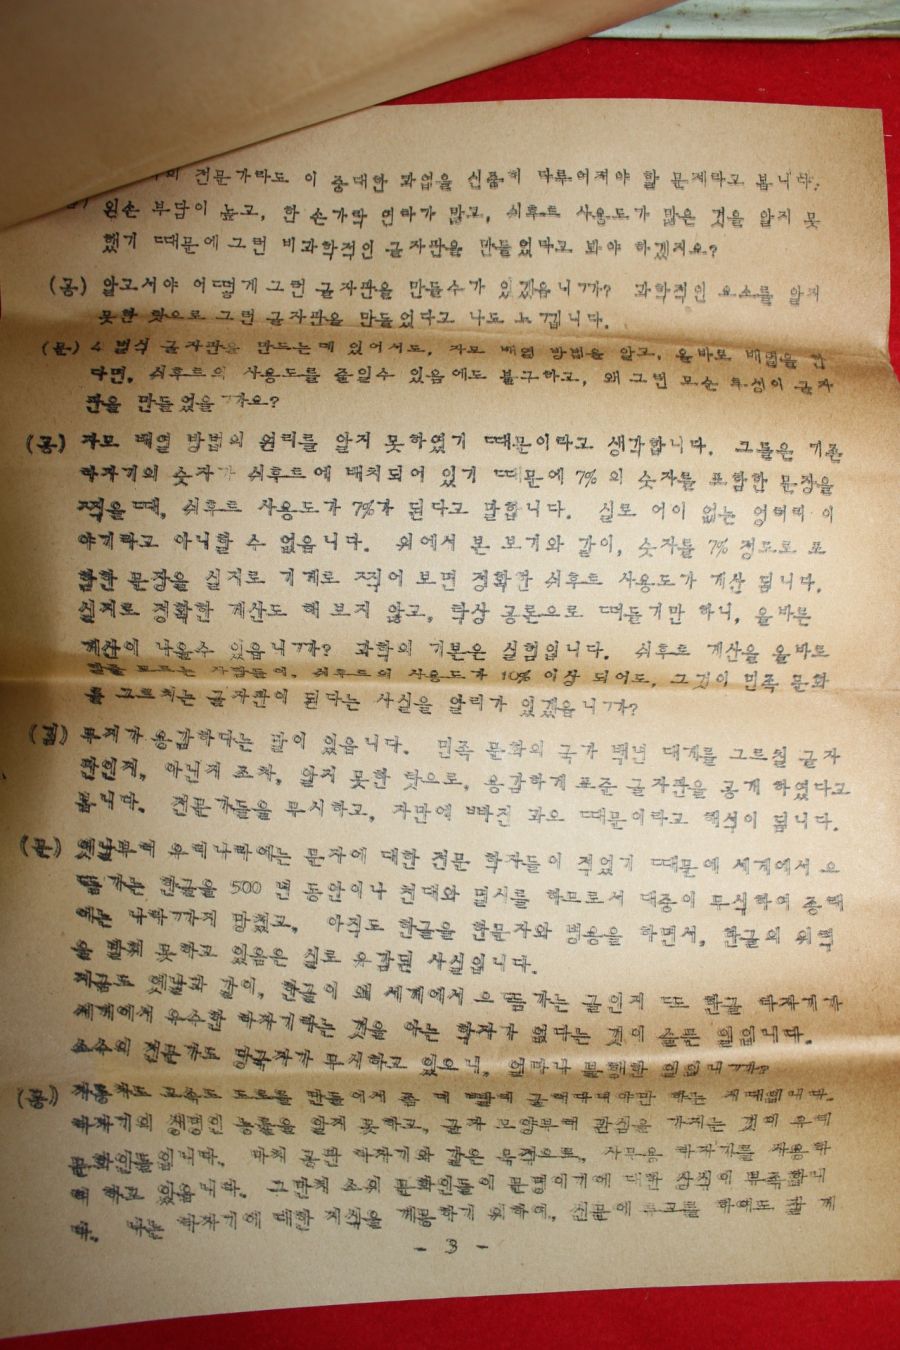 전문가라도 이 중대한 과업을 신중히 다루어져야 할 문제라고 봅니다.
왼손 부담이 높고, 한 손가락 연타가 많고, 쉬후트 사용도가 많은 것을 알지 못
했기 때문에 그런 비과학적인 글자판을 만들었다고 봐야 하겠지요?
(공) 알고서야 어떻게 그런 글자판을 만들수가 있겠읍니까? 과학적인 요소를 알지
못한 탓으로 그런 글자판을 만들었다고 나도 느낍니다.
(문) 4 벌식 글자판을 만드는데 있어서도, 자모 배열 방법을 알고, 올바로 배열을 한
다면, 쉬후트의 사용도를 줄일수 있음에도 불구하고, 왜 그런 모순 투성이 글자
판을 만들었을까요?
(공) 자모 배열 방법의 원리를 알지 못하였기 때문이라고 생각합니다. 그들은 기존
타자기의 숫자가 쉬후트에 배치되어 있기 때문에 7% 의 숫자를 포함한 문장을
찍을 때, 쉬후트 사용도가 7%가 된다고 말합니다. 실로 어이 없는 엉터리 이
야기라고 아니할 수 없읍니다. 위에서 본 보기와 같이, 숫자를 7% 정도로 포
함한 문장을 실지로 기계로 찍어 보면 정확한 쉬후트 사용도가 계산 됩니다.
실지로 정확한 계산도 해 보지 않고, 탁상 공론으로 떠들기만 하니, 올바른
계산이 나올수 있읍니까? 과학의 기본은 실험입니다. 쉬후트 계산을 올바로
할줄 모르는 사람들이, 쉬후트의 사용도가 10% 이상 되어도, 그것이 민족 문화
를 그르치는 글자판이 된다는 사실을 알리가 있겠읍니까?
무지가 용감하다는 말이 있읍니다. 민족 문화의 국가 백년 대계를 그르칠 글자
판인지, 아닌지 조차, 알지 못한 탓으로, 용감하게 표준 글자판을 공개 하였다고
봅니다. 전문가들을 무시하고, 자만에 빠진 과오 때문이라고 해석이 됩니다.
(문) 옛날부터 우리나라에는 문자에 대한 전문 학자들이 적었기 때문에 세계에서 으
뜸가는 한글을 500 년 동안이나 천대와 멸시를 하므로서 대중이 무식하여 종래
에는 나라까지 망쳤고, 아직도 한글을 한문자와 병용을 하면서, 한글의 위력
을 발휘 못하고 있음은 실로 유감된 사실입니다.
지금도 옛날과 같이, 한글이 왜 세계에서 으뜸가는 글인지 또 한글 타자기가
세계에서 우수한 타자기라는 것을 아는 학자가 없다는 것이 슬픈 일입니다.
소수의 전문가도 당국자가 무시하고 있으니, 얼마나 불행한 일입니까?
(공) 자동차도 고속도 도로를 만들
타자기의 생명인 능률을 알지 못하고, 글자 모양부터 관심을 가지는 것이 우리
문화인들입니다. 마치 공판 타자기와 같은 목적으로, 사무용 타자기를 사용하
려 하고 있읍니다. 그만치 소위 문화인들이 문명이기에 대한 상식이 부족합니
다. 나는 타자기에 대한 지식을 계몽하기 위하여, 신문에 투고를 하여도 잘 게
- 3 -